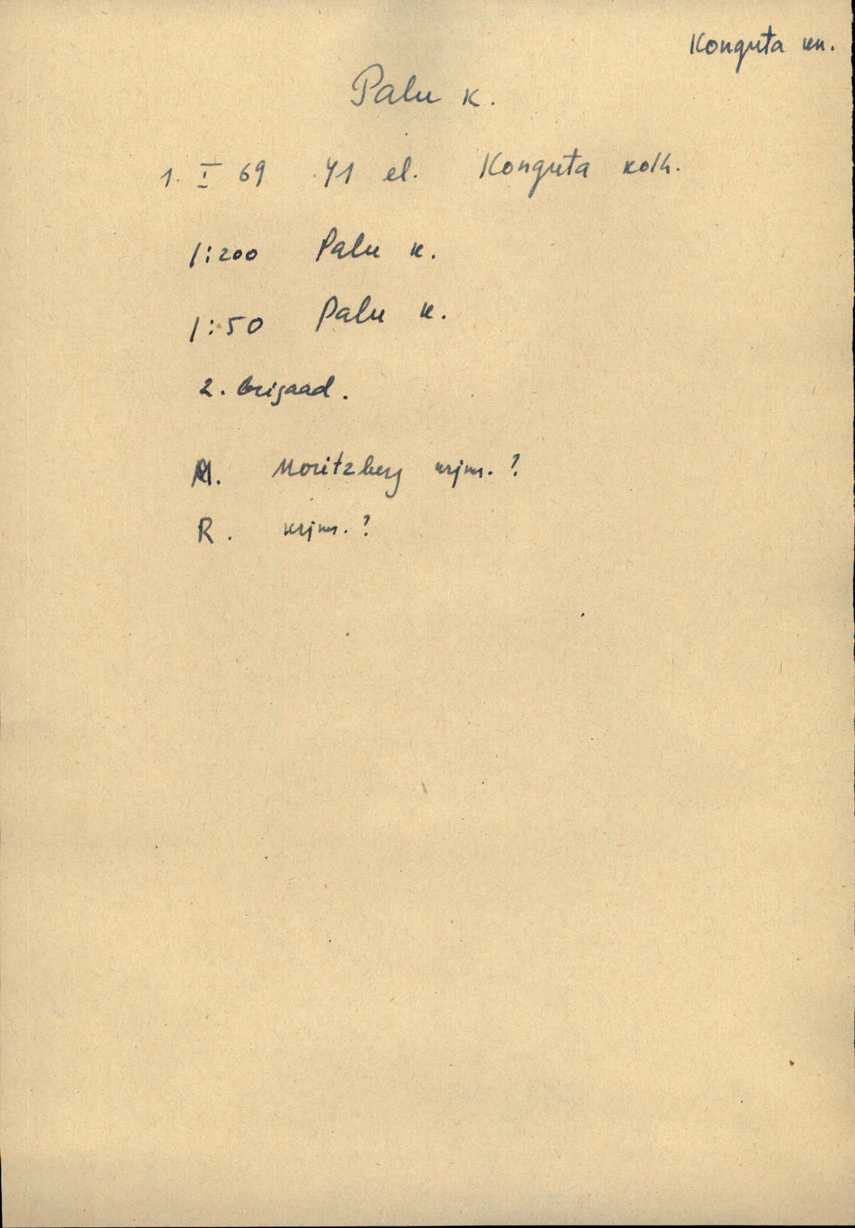 Konguta kn.
Palu k.
1. I 69 41 el. Konguta kolh.
1:200 Palu k.
1:50 Palu k.
2. brigaad.
M. Moritzberg krjms. ?
R. krjms. ?